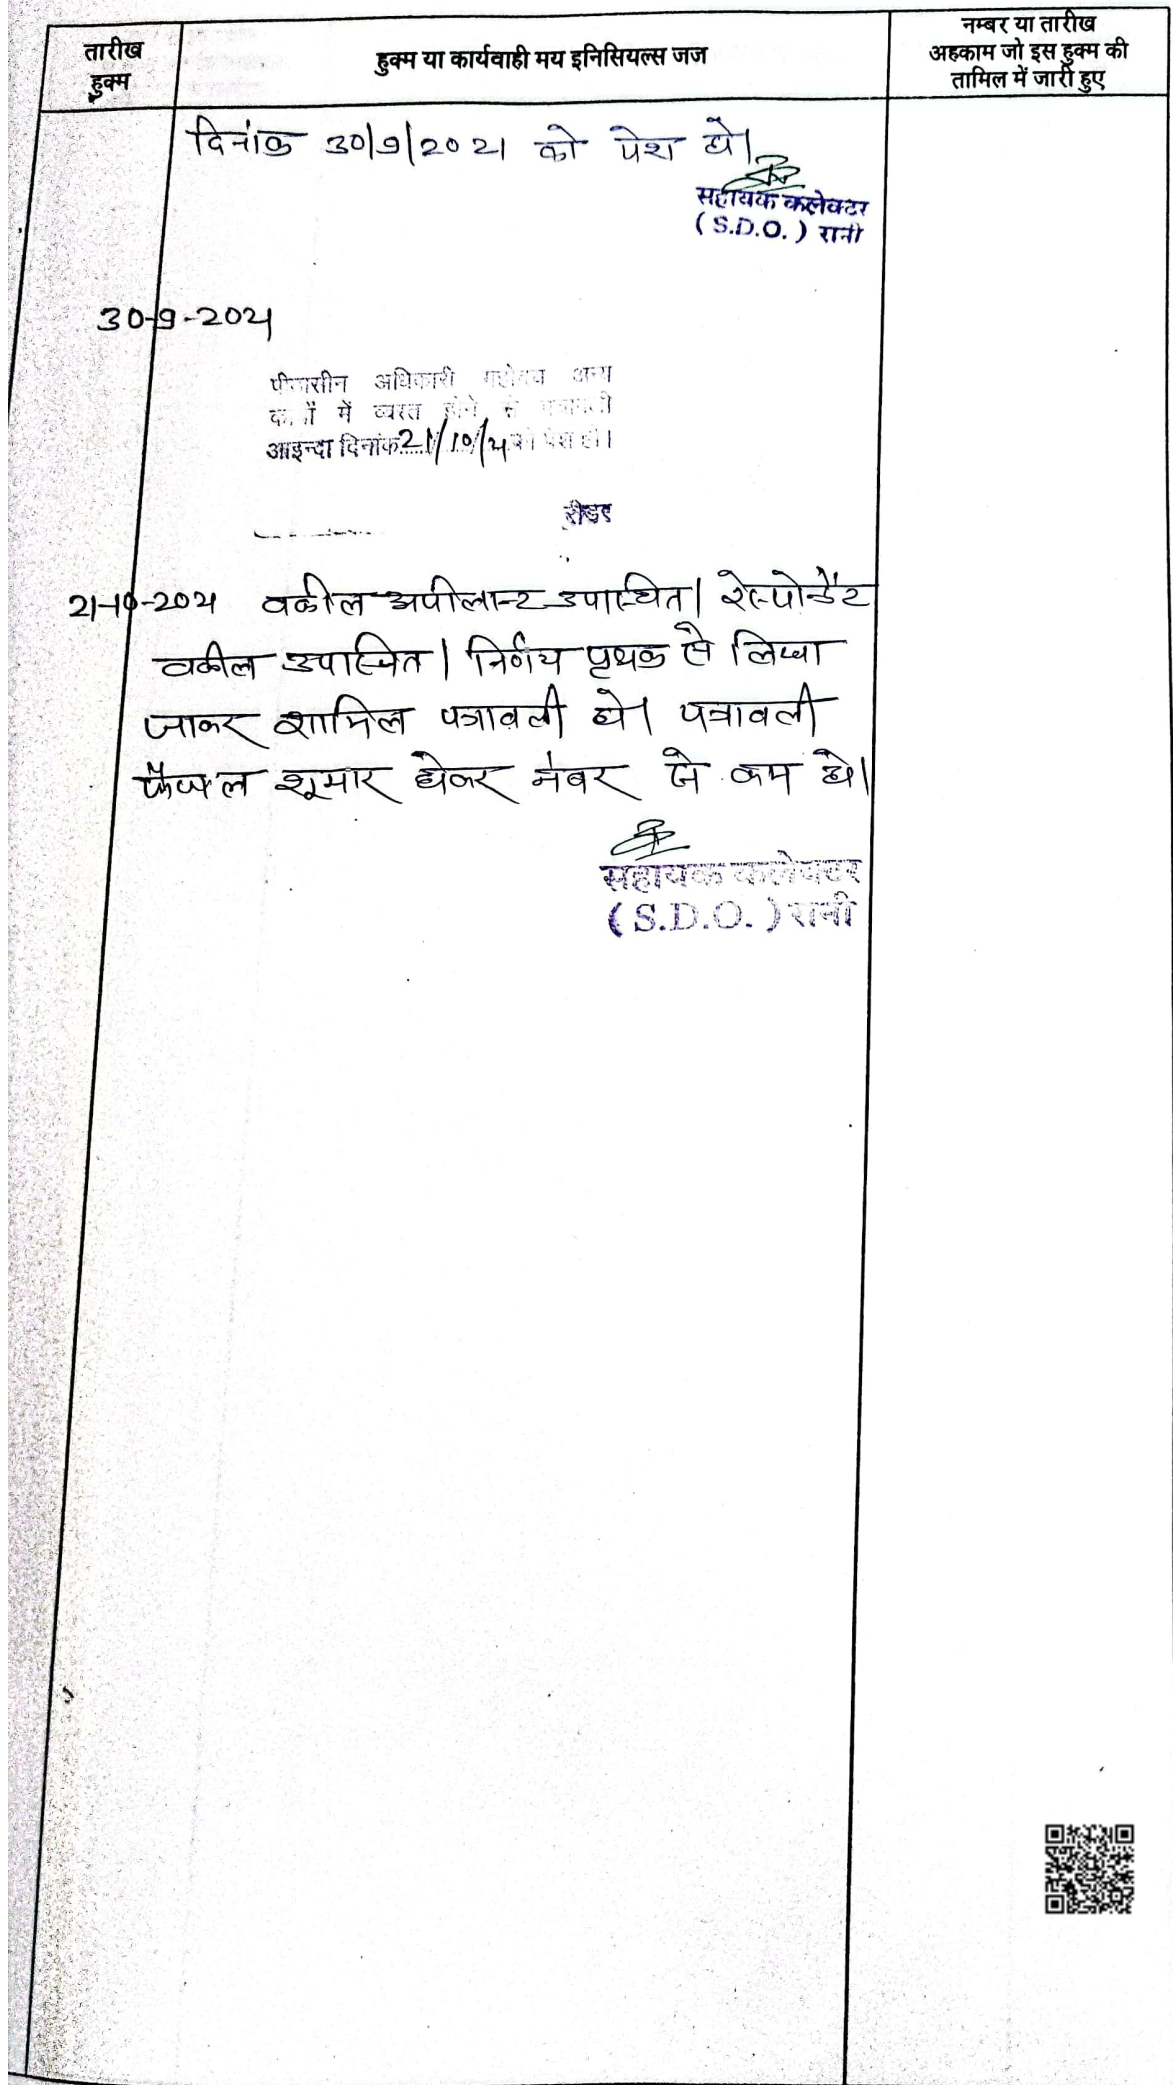 तारीख
हुक्म
हुक्म या कार्यवाही मय इनिसियल्स जज
नम्बर या तारीख
अहकाम जो इस हुक्म की
तामिल में जारी हुए
दिनांक 30/9/2021 को पेश हो।
सहायक कलेक्टर
(S.D.O.) रानी
30-9-2021
पीठासीन अधिकारी महोदय अन्य
में व्यस्त होने से पत्रावली
आइन्दा दिनांक 21/10/21 को पेश हो।
रीडर
21-10-2021 वकील अपीलान्ट उपस्थित। रेस्पोन्डेंट
वकील उपस्थित। निर्णय पृथक से लिखा
जाकर शामिल पत्रावली हो। पत्रावली
फैसल शूमार होकर नंबर से कम हो।
सहायक कलेक्टर
(S.D.O.) रानी